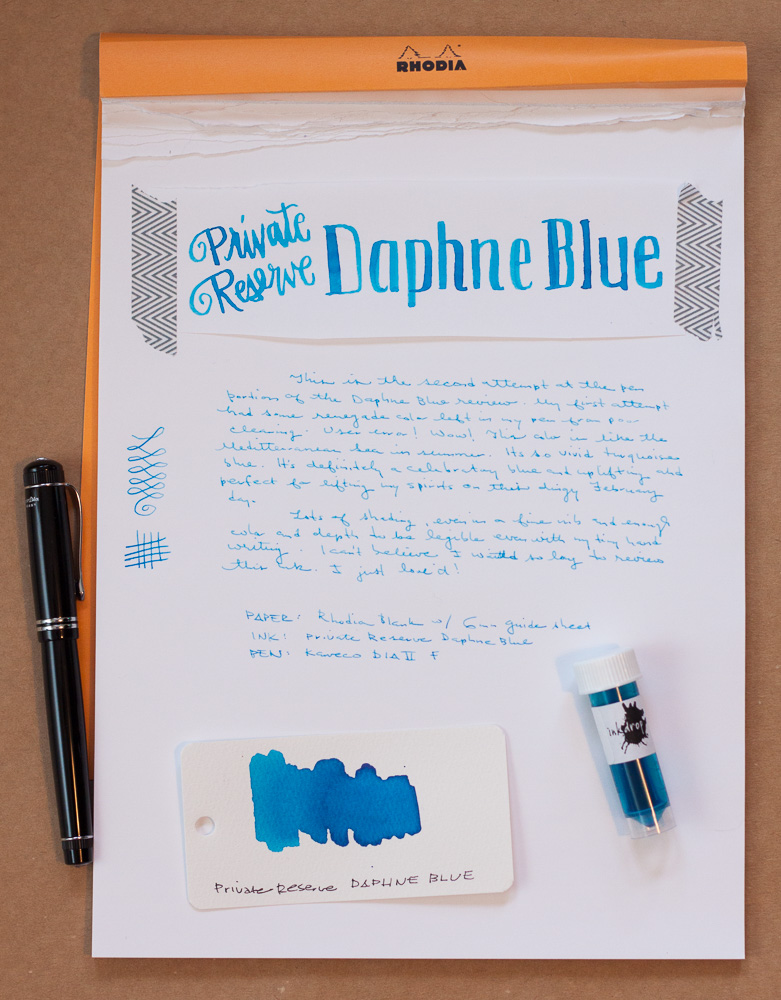 RHODIA
Private Reserve Daphne Blue
This is the second attempt at the pen
portion of the Daphne Blue review. My first attempt
had some renegade color left in my pen from poor
cleaning. User error! Wow! This color is like the
Mediterranean Sea in summer. Its so vivid turquoise
blue. It's definitely a celebratory blue and uplifting and
perfect for lifting my spirits on this dingy February
day.
Lots of shading, even in a fine nib and enough
color and depth to be legible even with my tiny hand
writing. I can't believe I waited so long to review
this ink. I just love'd!
PAPER: Rhodia Blank w/ 6mm guide sheet
INK: Private Reserve Daphne Blue
PEN: Kaweco DIA II F
ink drop
Private Reserve DAPHNE BLUE